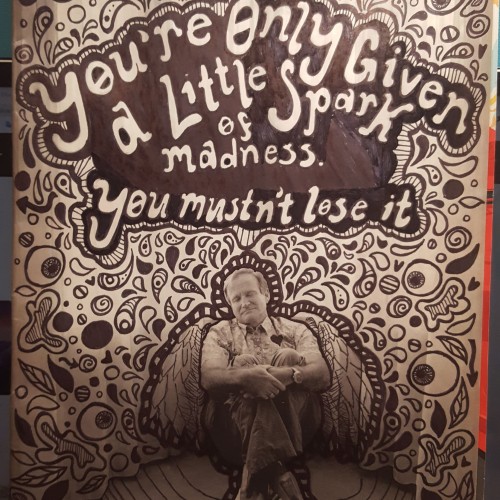 You're Only Given
a Little Spark
of
madness.
You mustn't lose it